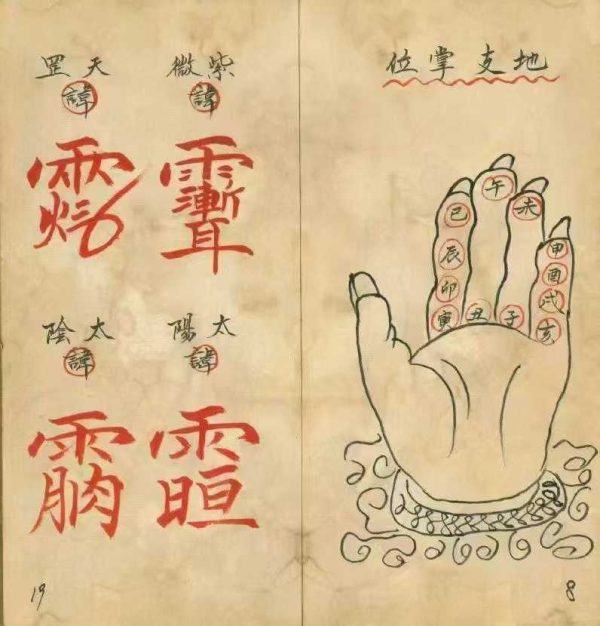 地支掌位
子
丑
寅
卯
辰
巳
午
未
申
酉
戌
亥
8
紫微
諱
天罡
諱
太陽
諱
太陰
諱
19